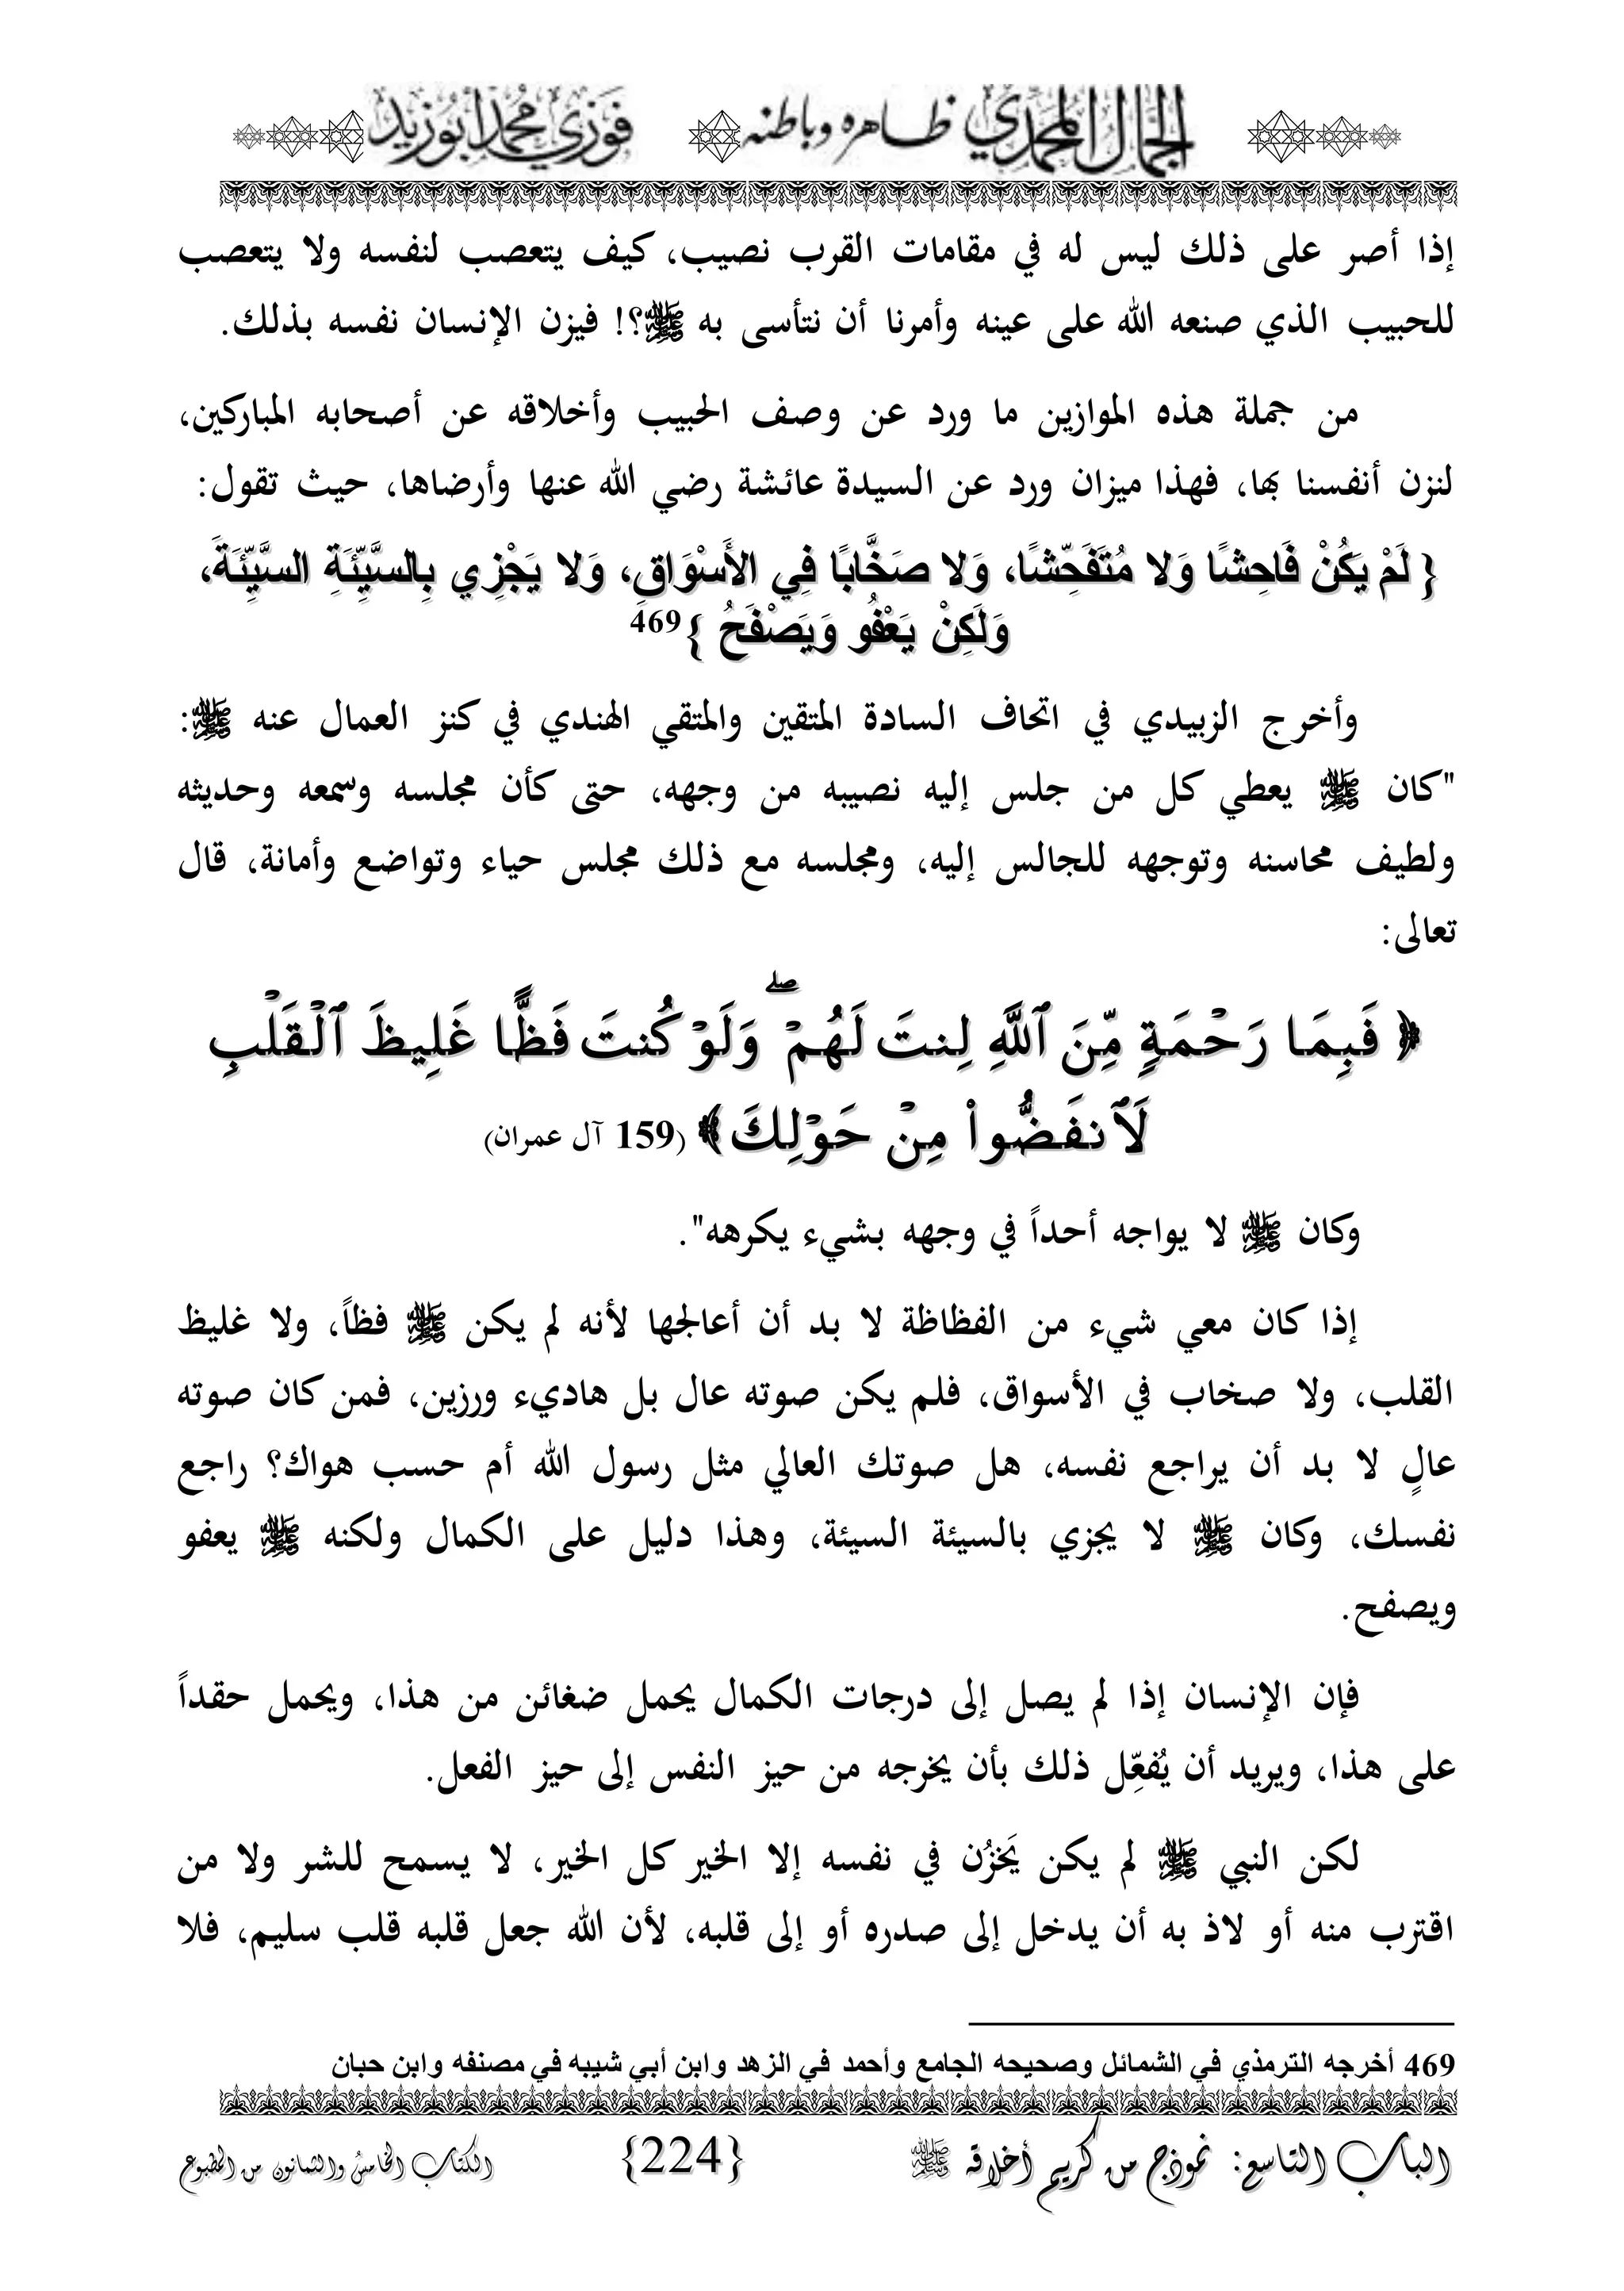 الجمال المحمدي ظاهره وباطنه فوزي محمد أبوزيد
إذا أصر على ذلك ليس له في مقامات القرب نصيب، كيف يتعصب لنفسه ولا يتعصب
للحبيب الذي صنعه الله على عينه وأمرنا أن نتأسى به ﷺ؟! فيزن الإنسان نفسه بذلك.
من جملة هذه الموازين ما ورد عن وصف الحبيب وأخلاقه عن أصحابه المباركين،
لنزن أنفسنا بها، فهذا ميزان ورد عن السيدة عائشة رضي الله عنها وأرضاها، حيث تقول:
{ لَمْ يَكُنْ فَاحِشًا وَلا مُتَفَحِّشًا، وَلا صَخَّابًا فِي الأَسْوَاقِ، وَلا يَجْزِي بِالسَّيِّئَةِ السَّيِّئَةَ،
وَلَكِنْ يَعْفُو وَيَصْفَحُ }469
وأخرج الزبيدي في اتحاف السادة المتقين والمتقي الهندي في كنز العمال عنه ﷺ:
"كان ﷺ يعطي كل من جلس إليه نصيبه من وجهه، حتى كأن مجلسه وسمعه وحديثه
ولطيف محاسنه وتوجهه للجالس إليه، ومجلسه مع ذلك مجلس حياء وتواضع وأمانة، قال
تعالى:
﴿ فَبِمَا رَحْمَةٍ مِّنَ ٱللَّهِ لِنتَ لَهُمْ ۖ وَلَوْ كُنتَ فَظًّا غَلِيظَ ٱلْقَلْبِ
لَٱنفَضُّوا۟ مِنْ حَوْلِكَ ﴾ (159 آل عمران)
وكان ﷺ لا يواجه أحداً في وجهه بشيء يكرهه".
إذا كان معي شيء من الفظاظة لا بد أن أعالجها لأنه لم يكن ﷺ فظاً، ولا غليظ
القلب، ولا صخاب في الأسواق، فلم يكن صوته عال بل هاديء ورزين، فمن كان صوته
عالٍ لا بد أن يراجع نفسه، هل صوتك العالي مثل رسول الله أم حسب هواك؟ راجع
نفسك، وكان ﷺ لا يجزي بالسيئة السيئة، وهذا دليل على الكمال ولكنه ﷺ يعفو
ويصفح.
فإن الإنسان إذا لم يصل إلى درجات الكمال يحمل ضغائن من هذا، ويحمل حقداً
على هذا، ويريد أن يُفعِّل ذلك بأن يخرجه من حيز النفس إلى حيز الفعل.
لكن النبي ﷺ لم يكن يَخزُن في نفسه إلا الخير كل الخير، لا يسمح للشر ولا من
اقترب منه أو لاذ به أن يدخل إلى صدره أو إلى قلبه، لأن الله جعل قلبه قلب سليم، فلا
469 أخرجه الترمذي في الشمائل وصحيحه الجامع وأحمد في الزهد وابن أبي شيبه في مصنفه وابن حبان
الباب التاسع: نموذج من كريم أخلاقه ﷺ {224} الكتاب الخامس والثمانون من المطبوع